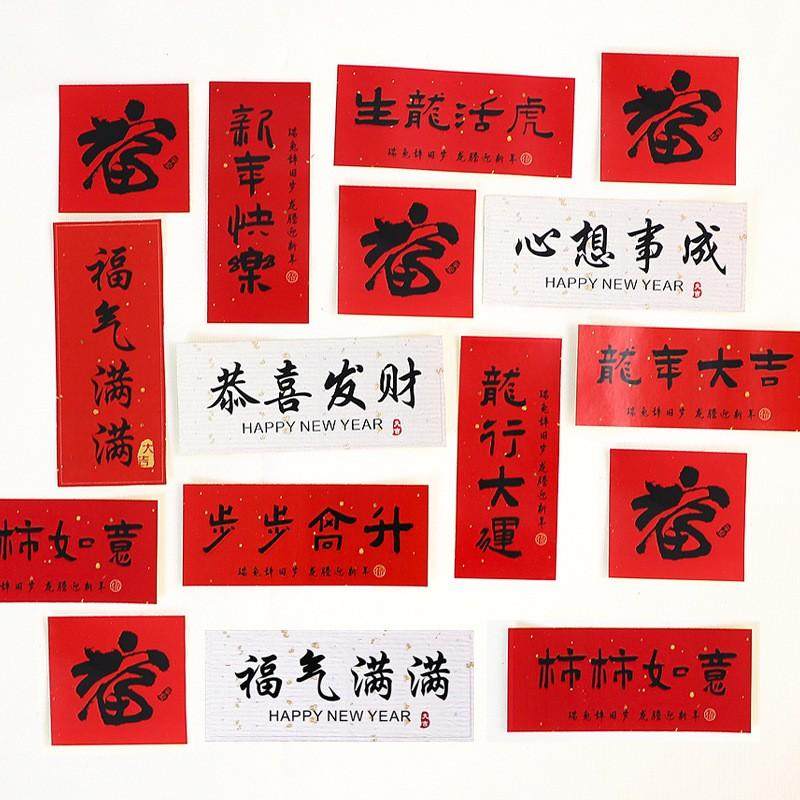 福
新年快樂
瑞兔辞旧岁 龙腾迎新年
生龍活虎
瑞兔辞旧岁 龙腾迎新年
福
福
心想事成
HAPPY NEW YEAR
大吉
福气满满
大吉
恭喜发财
HAPPY NEW YEAR
大吉
龍行大運
瑞兔辞旧岁 龙腾迎新年
龍年大吉
瑞兔辞旧岁 龙腾迎新年
福
柿如意
辞旧岁 龙腾迎新年
步步高升
瑞兔辞旧岁 龙腾迎新年
福
福气满满
HAPPY NEW YEAR
大吉
柿柿如意
瑞兔辞旧岁 龙腾迎新年